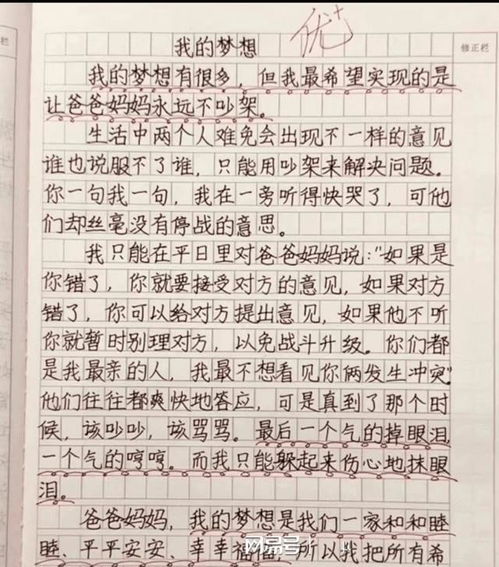 优+
我的梦想
修正栏
我的梦想有很多，但我最希望实现的是
让爸爸妈妈永远不吵架。
生活中两个人难免会出现不一样的意见
谁也说服不了谁，只能用吵架来解决问题。
你一句我一句，我在一旁听得快哭了，可他
们却丝毫没有停战的意思。
我只能在平日里对爸爸妈妈说："如果是
你错了，你就要接受对方的意见，如果对方
错了，你可以给对方提出意见，如果他不听
你就暂时别理对方，以免战斗升级。你们都
是我最亲的人，我最不想看见你俩发生冲突"
他们往往都爽快地答应，可是真到了那个时
候，该吵吵，该骂骂。最后一个气的掉眼泪
一个气的哼哼。而我只能躲起来伤心地抹眼
泪。
爸爸妈妈，我的梦想是我们一家和和睦
睦、平平安安、幸幸福福，所以我把所有希
网易号